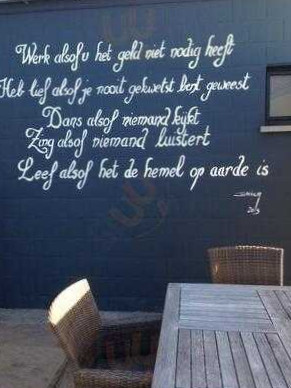 Werk alsof u het geld niet nodig heeft
Heb lief alsof je nooit gekwetst bent geweest
Dans alsof niemand kijkt
Zing alsof niemand luistert
Leef alsof het de hemel op aarde is